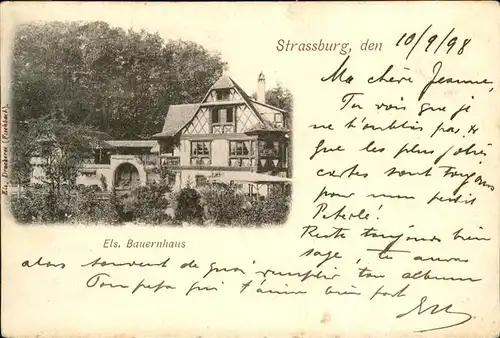 Strassburg, den 10/9/98
Ma chère Jeanne,
Tu vois que je
ne t'oublie pas, &
que les plus jolies
cartes sont toujours
pour mon petit
Peterlé!
Reste toujours bien
sage, tu auras
alors souvent de quoi remplir ton album
Ton papa qui t'aime bien fort
Els. Bauernhaus